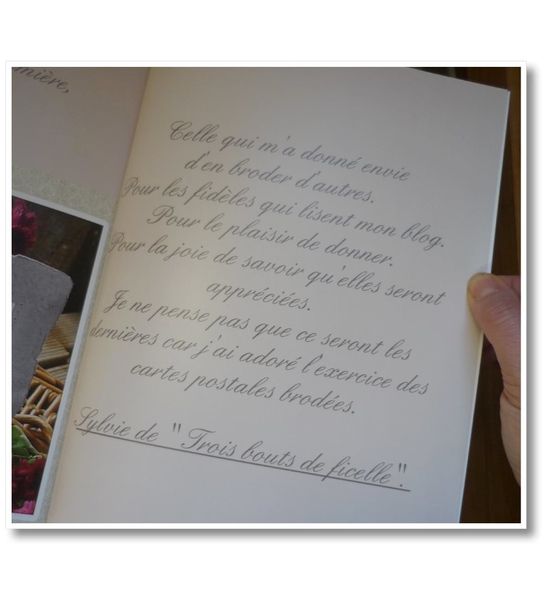 mière,
Celle qui m'a donné envie
d'en broder d'autres.
Pour les fidèles qui lisent mon blog.
Pour le plaisir de donner.
Pour la joie de savoir qu'elles seront
appréciées.
Je ne pense pas que ce seront les
dernières car j'ai adoré l'exercice des
cartes postales brodées.
Sylvie de "Trois bouts de ficelle".